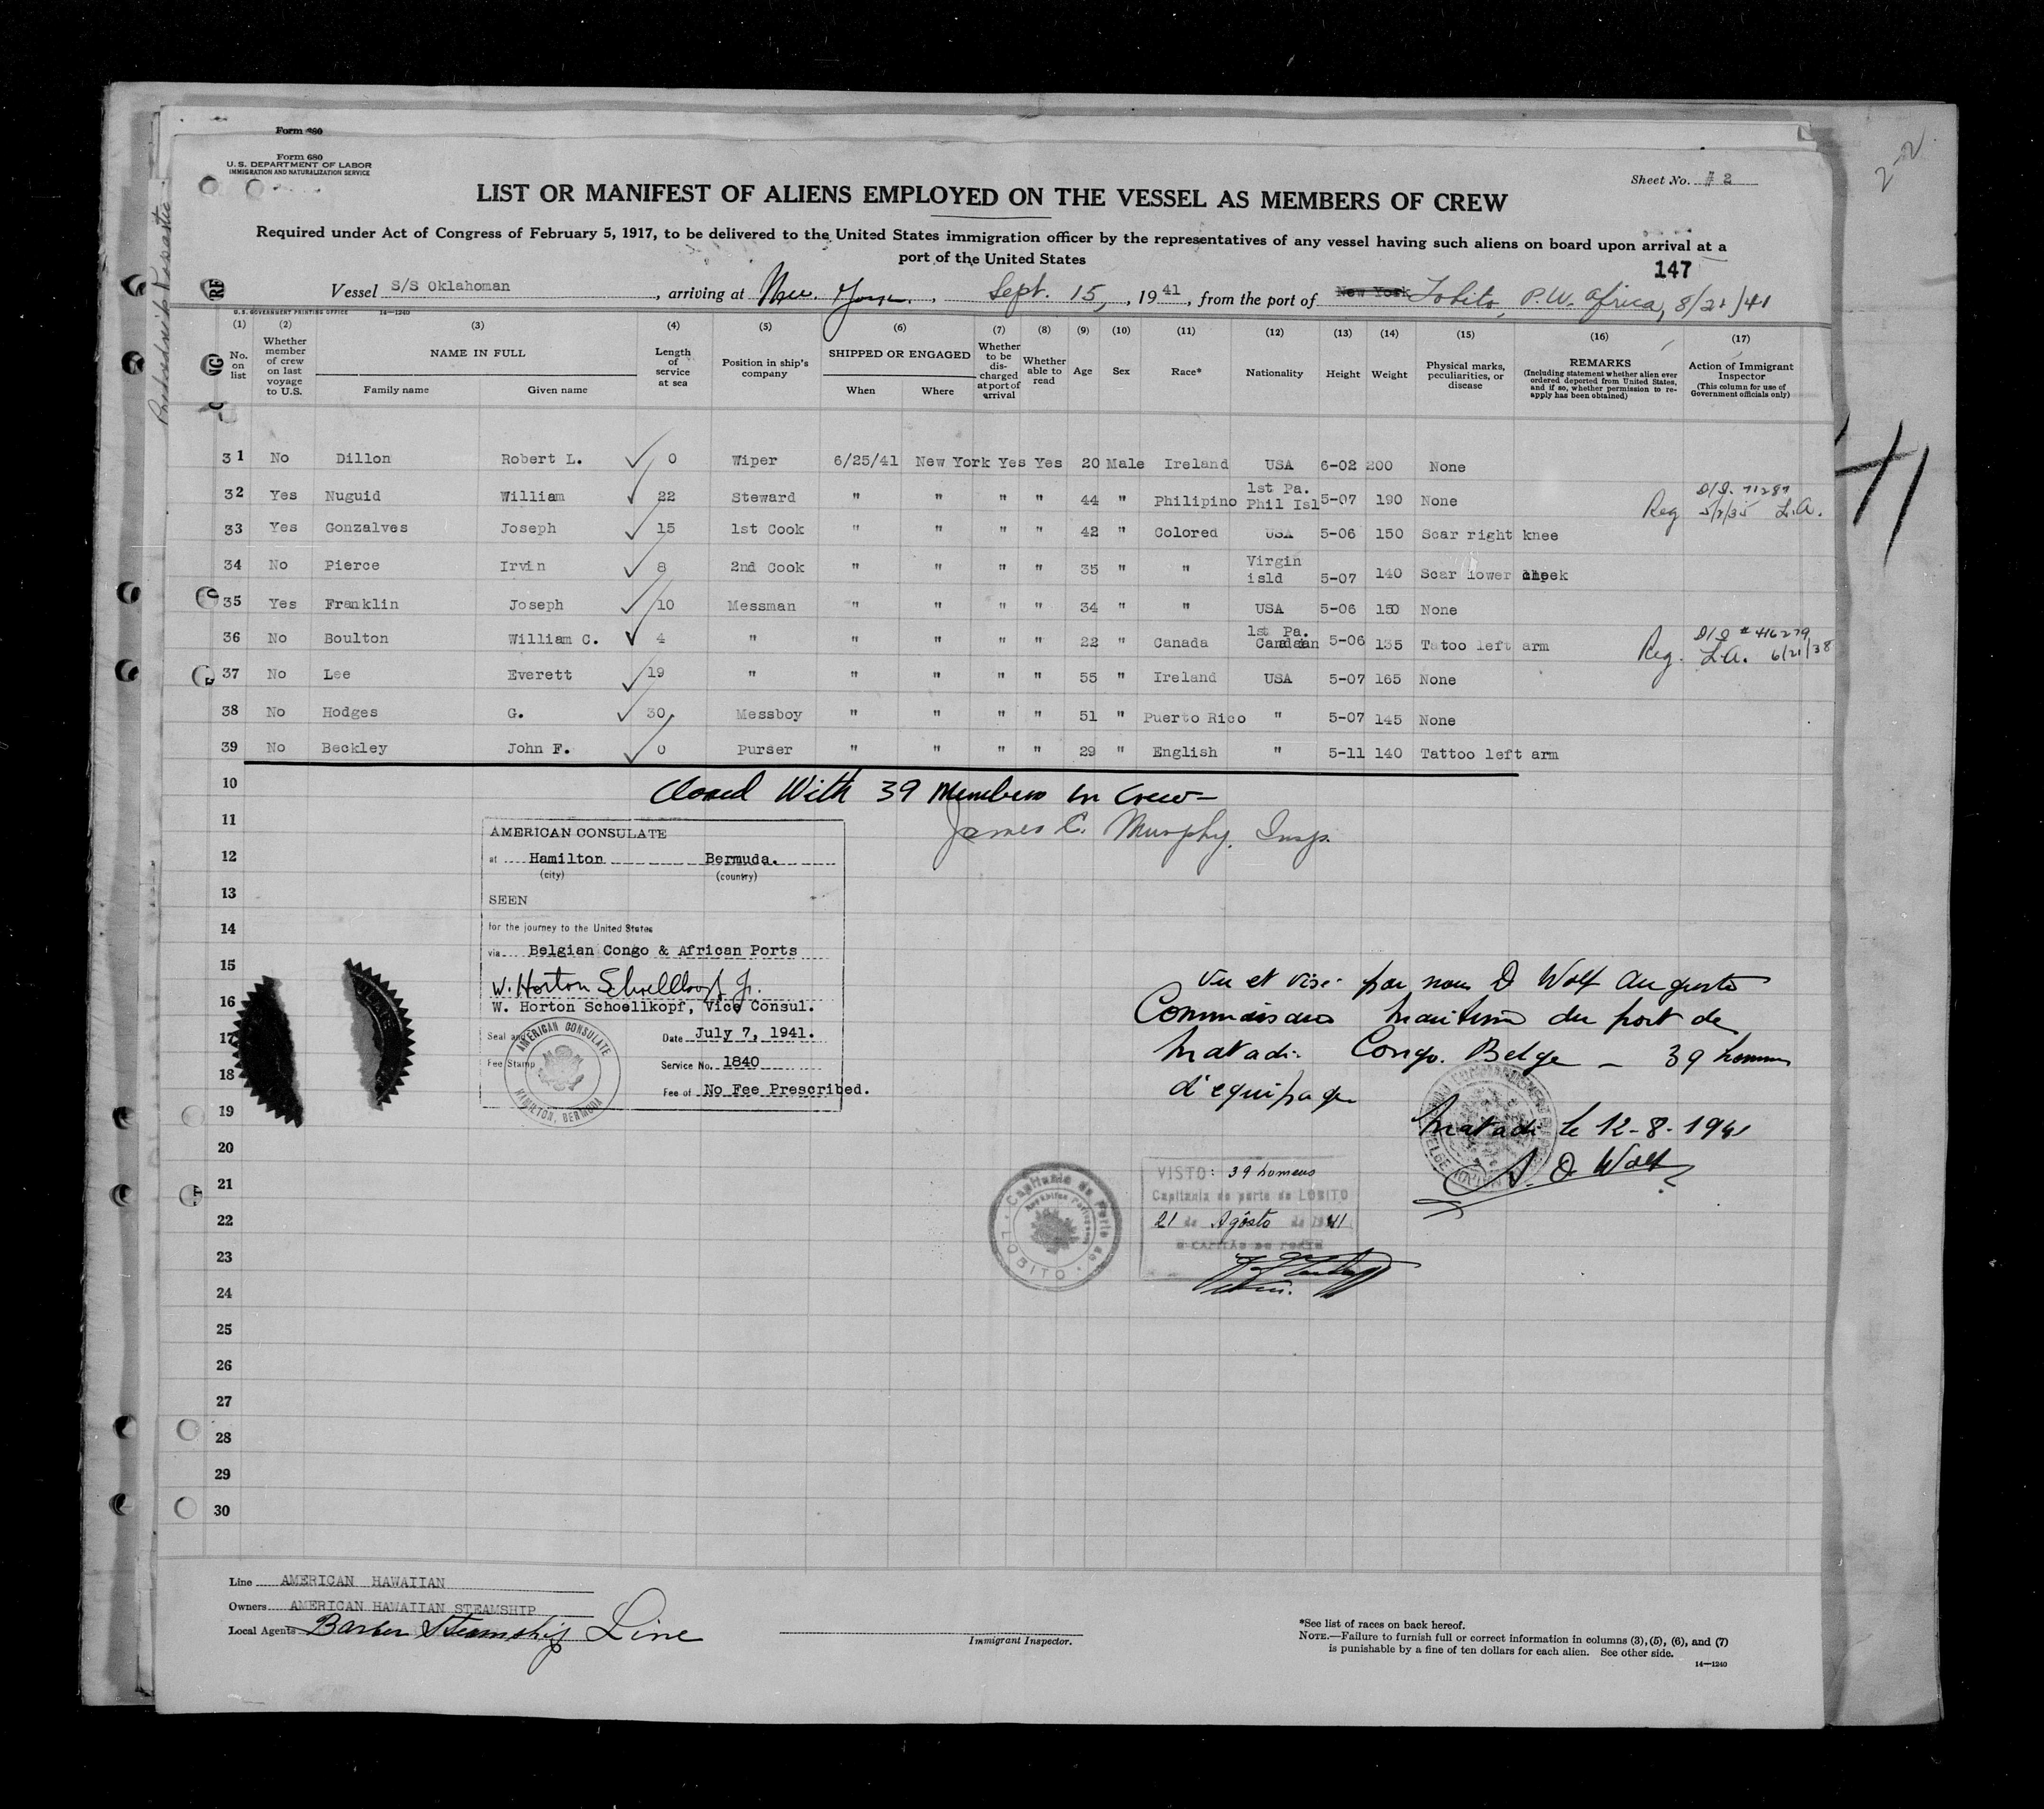 Form 680
Form 680
U. S. DEPARTMENT OF LABOR
IMMIGRATION AND NATURALIZATION SERVICE
Sheet No. # 2
LIST OR MANIFEST OF ALIENS EMPLOYED ON THE VESSEL AS MEMBERS OF CREW
Required under Act of Congress of February 5, 1917, to be delivered to the United States immigration officer by the representatives of any vessel having such aliens on board upon arrival at a
port of the United States
147
Vessel S/S Oklahoman, arriving at New York, Sept. 15, 1941, from the port of New York Lobito, P.W. Africa, 8/21/41
U. S. GOVERNMENT PRINTING OFFICE 14-1240
(1) (2) (3) (4) (5) (6) (7) (8) (9) (10) (11) (12) (13) (14) (15) (16) (17)
No. on list
Whether member of crew on last voyage to U.S.
NAME IN FULL
Family name
Given name
Length of service at sea
Position in ship's company
SHIPPED OR ENGAGED
When
Where
Whether to be discharged at port of arrival
Whether able to read
Age
Sex
Race*
Nationality
Height
Weight
Physical marks, peculiarities, or disease
REMARKS
(Including statement whether alien ever ordered deported from United States, and if so, whether permission to reapply has been obtained)
Action of Immigrant Inspector
(This column for use of Government officials only)
31 No Dillon Robert L. ✓ 0 Wiper 6/25/41 New York Yes Yes 20 Male Ireland USA 6-02 200 None
32 Yes Nuguid William ✓ 22 Steward " " " " 44 " Philipino 1st Pa. Phil Isl 5-07 190 None Reg 5/7/35 L.A.
33 Yes Gonzalves Joseph ✓ 15 1st Cook " " " " 42 " Colored USA 5-06 150 Scar right knee
34 No Pierce Irvin ✓ 8 2nd Cook " " " " 35 " " Virgin isld 5-07 140 Scar lower cheek
35 Yes Franklin Joseph ✓ 10 Messman " " " " 34 " " USA 5-06 150 None
36 No Boulton William C. ✓ 4 " " " " " 22 " Canada 1st Pa. Canadian 5-06 135 Tatoo left arm Reg. # 416279 L.A. 6/21/38
37 No Lee Everett ✓ 19 " " " " " 55 " Ireland USA 5-07 165 None
38 No Hodges G. ✓ 30 Messboy " " " " 51 " Puerto Rico " 5-07 145 None
39 No Beckley John F. ✓ 0 Purser " " " " 29 " English " 5-11 140 Tattoo left arm
10
Closed With 39 Members in Crew-
James C. Murphy. Insp.
11
12
13
14
15
16
17
18
19
20
21
22
23
24
25
26
27
28
29
30
AMERICAN CONSULATE
at Hamilton Bermuda.
(city) (country)
SEEN
for the journey to the United States
via Belgian Congo & African Ports
W. Horton Schoellkopf Jr.
W. Horton Schoellkopf, Vice Consul.
Seal and Fee Stamp
Date July 7, 1941.
Service No. 1840
Fee of No Fee Prescribed.
AMERICAN CONSULATE
HAMILTON, BERMUDA
Vu et visé par nous D Wolf Auguste
Commissaire Maritime du port de
Matadi Congo Belge - 39 hommes
d'equipage
Matadi le 12-8-1941
A. D Wolf
VISTO: 39 homens
Capitania do porto de LOBITO
21 de Agosto de 1941
O CAPITÃO DO PORTO
Capitania do Porto do LOBITO
Line AMERICAN HAWAIIAN
Owners AMERICAN HAWAIIAN STEAMSHIP
Local Agents Barber Steamship Line
Immigrant Inspector.
*See list of races on back hereof.
NOTE.—Failure to furnish full or correct information in columns (3), (5), (6), and (7)
is punishable by a fine of ten dollars for each alien. See other side.
14-1240